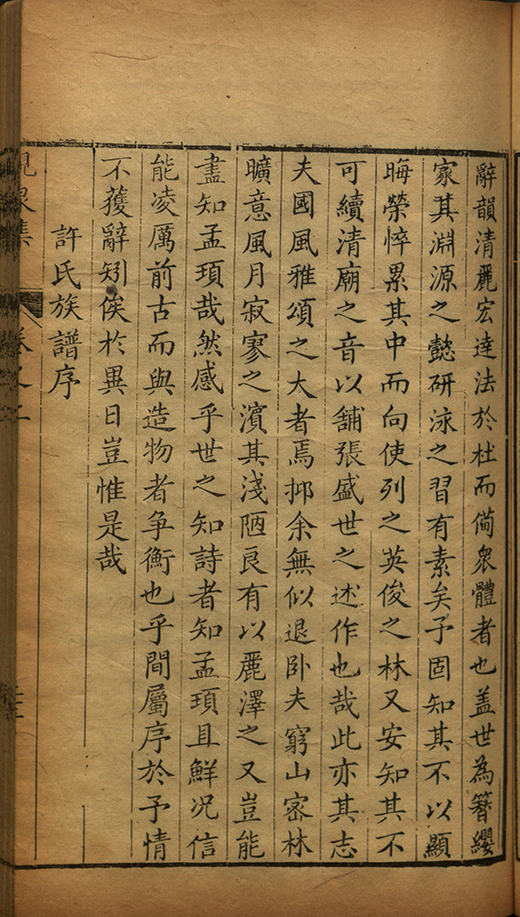 辭韻清麗宏達法於杜而僃衆體者也盖世為簪纓
家其淵源之懿研泳之習有素矣予固知其不以顯
晦榮悴累其中而向使列之英俊之林又安知其不
可續清廟之音以舖張盛世之述作也哉此亦其志
夫國風雅頌之大者焉抑余無似退卧夫窮山宻林
曠意風月寂寥之濱其淺陋良有以麗澤之又豈能
盡知孟頊哉然感乎世之知詩者知孟頊且鮮况信
能凌厲前古而與造物者争衡也乎間屬序於予情
不獲辭矧俟於異日豈惟是哉
許氏族譜序